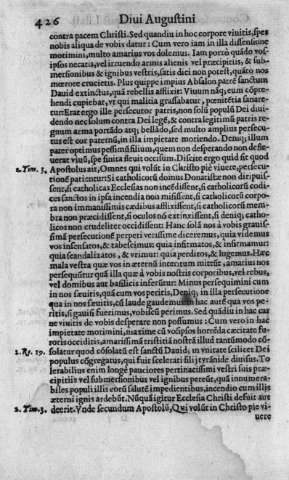 426 Diui Augustini
contra pacem Christi. Sed quandiu in hoc corpore viuitis, spes
nobis aliqua de vobis datur: Cum vero iam in illa dissensione
morimini, multo amarius vos dolemus. Iam porrò quido vos
ipsos necatis, vel irruendo armis alienis vel præcipitiis, & sub
mersionibus & ignibus vestris, satis dici non potest, quãto nos
mœrore crucietis. Plus quippe impius Absalon patrē sanctum
Dauid extinctus, quà rebellis afflixit: Viuum nãq; eum cõpre-
hendi cupiebat, vt qui malitia grassabatur, pœnitētia sanare-
tur: Erat ergo ille persecutor patris, non solũ populũ Dei diui-
dendo nec solum contra Dei legē, & contra legitimũ patris re-
gnum arma portãdo atq; bellãdo, sed multo amplius persecu-
tus est cor paternũ, in illa impietate moriendo. Deniq; illum
pater optimus pessimũ fleuit, quem non desperando non de fle-
uerat viuũ, spe finita fleuit occisum. Discite ergo quid sit quod
2. Tim. 3. Apostolus ait, Omnes qui volūt in Christo piè viuere, persecu-
tionē patiuntur: Si catholicorũ domus Donatistæ non diripuis-
sent, si catholicas Ecclesias non incēdissent, si catholicorũ codi-
ces sanctos in ipsa incendia non misissent, si catholicorũ corpo-
ra non immanissimis cædibus afflixissent, si catholicorũ mem-
bra non præcidissent, si oculos nō extinxissent, si deniq; catho-
licos non crudeliter occidissent: Hanc solã nos à vobis grauis-
simã persecutionē perpeti verissimè diceremus, quia videmus
vos insensatos, & tabescimus: quia infirmatos, & infirmamur:
quia scandalizatos, & vrimur: quia perditos, & lugemus. Hæc
mala vestra quæ vos in æternũ interitum mittūt, amarius nos
persequuntur quã illa quæ à vobis nostris corporibus, vel rebus,
vel domibus aut basilicis inferūtur: Minus persequimini cum
in nos sæuitis, quã cum vos peritis, Deniq; in illa persecutione
quia in nos sæuitis, cũ laude gaudemus in hac autē qua vos pe-
ritis, si gauserimus, vobiscũ perimus. Sed quid dũ in hac car
ne viuitis de vobis desperare non possumus: Cum vero in hac
impietate morimini, maximè cũ vosipsos horrēda cæcitate fu-
roris occiditis, amarissimã tristitiã nostrã illud tantũmodo cõ-
2. Re. 19. solatur quod cõsolatũ est sanctũ Dauid, in vnitate scilicet Dei
populos cõgregatus, qui fuit scelerati filij tyrãnide diuisus. To
lerabilius enim longè pauciores pertinacissimi vestri suis præ-
cipitiis vel submersionibus vel ignibus pereūt, quã innumera-
biles populi illis eorũ salutē impedientibus, incēdio cum illis
æterni ignis ardebūt. Nusquã igitur Ecclesia Christi desuit aut
2. Tim. 3. deerit. Vnde secundum Apostolũ, Qui volūt in Christo piè vi-
uere